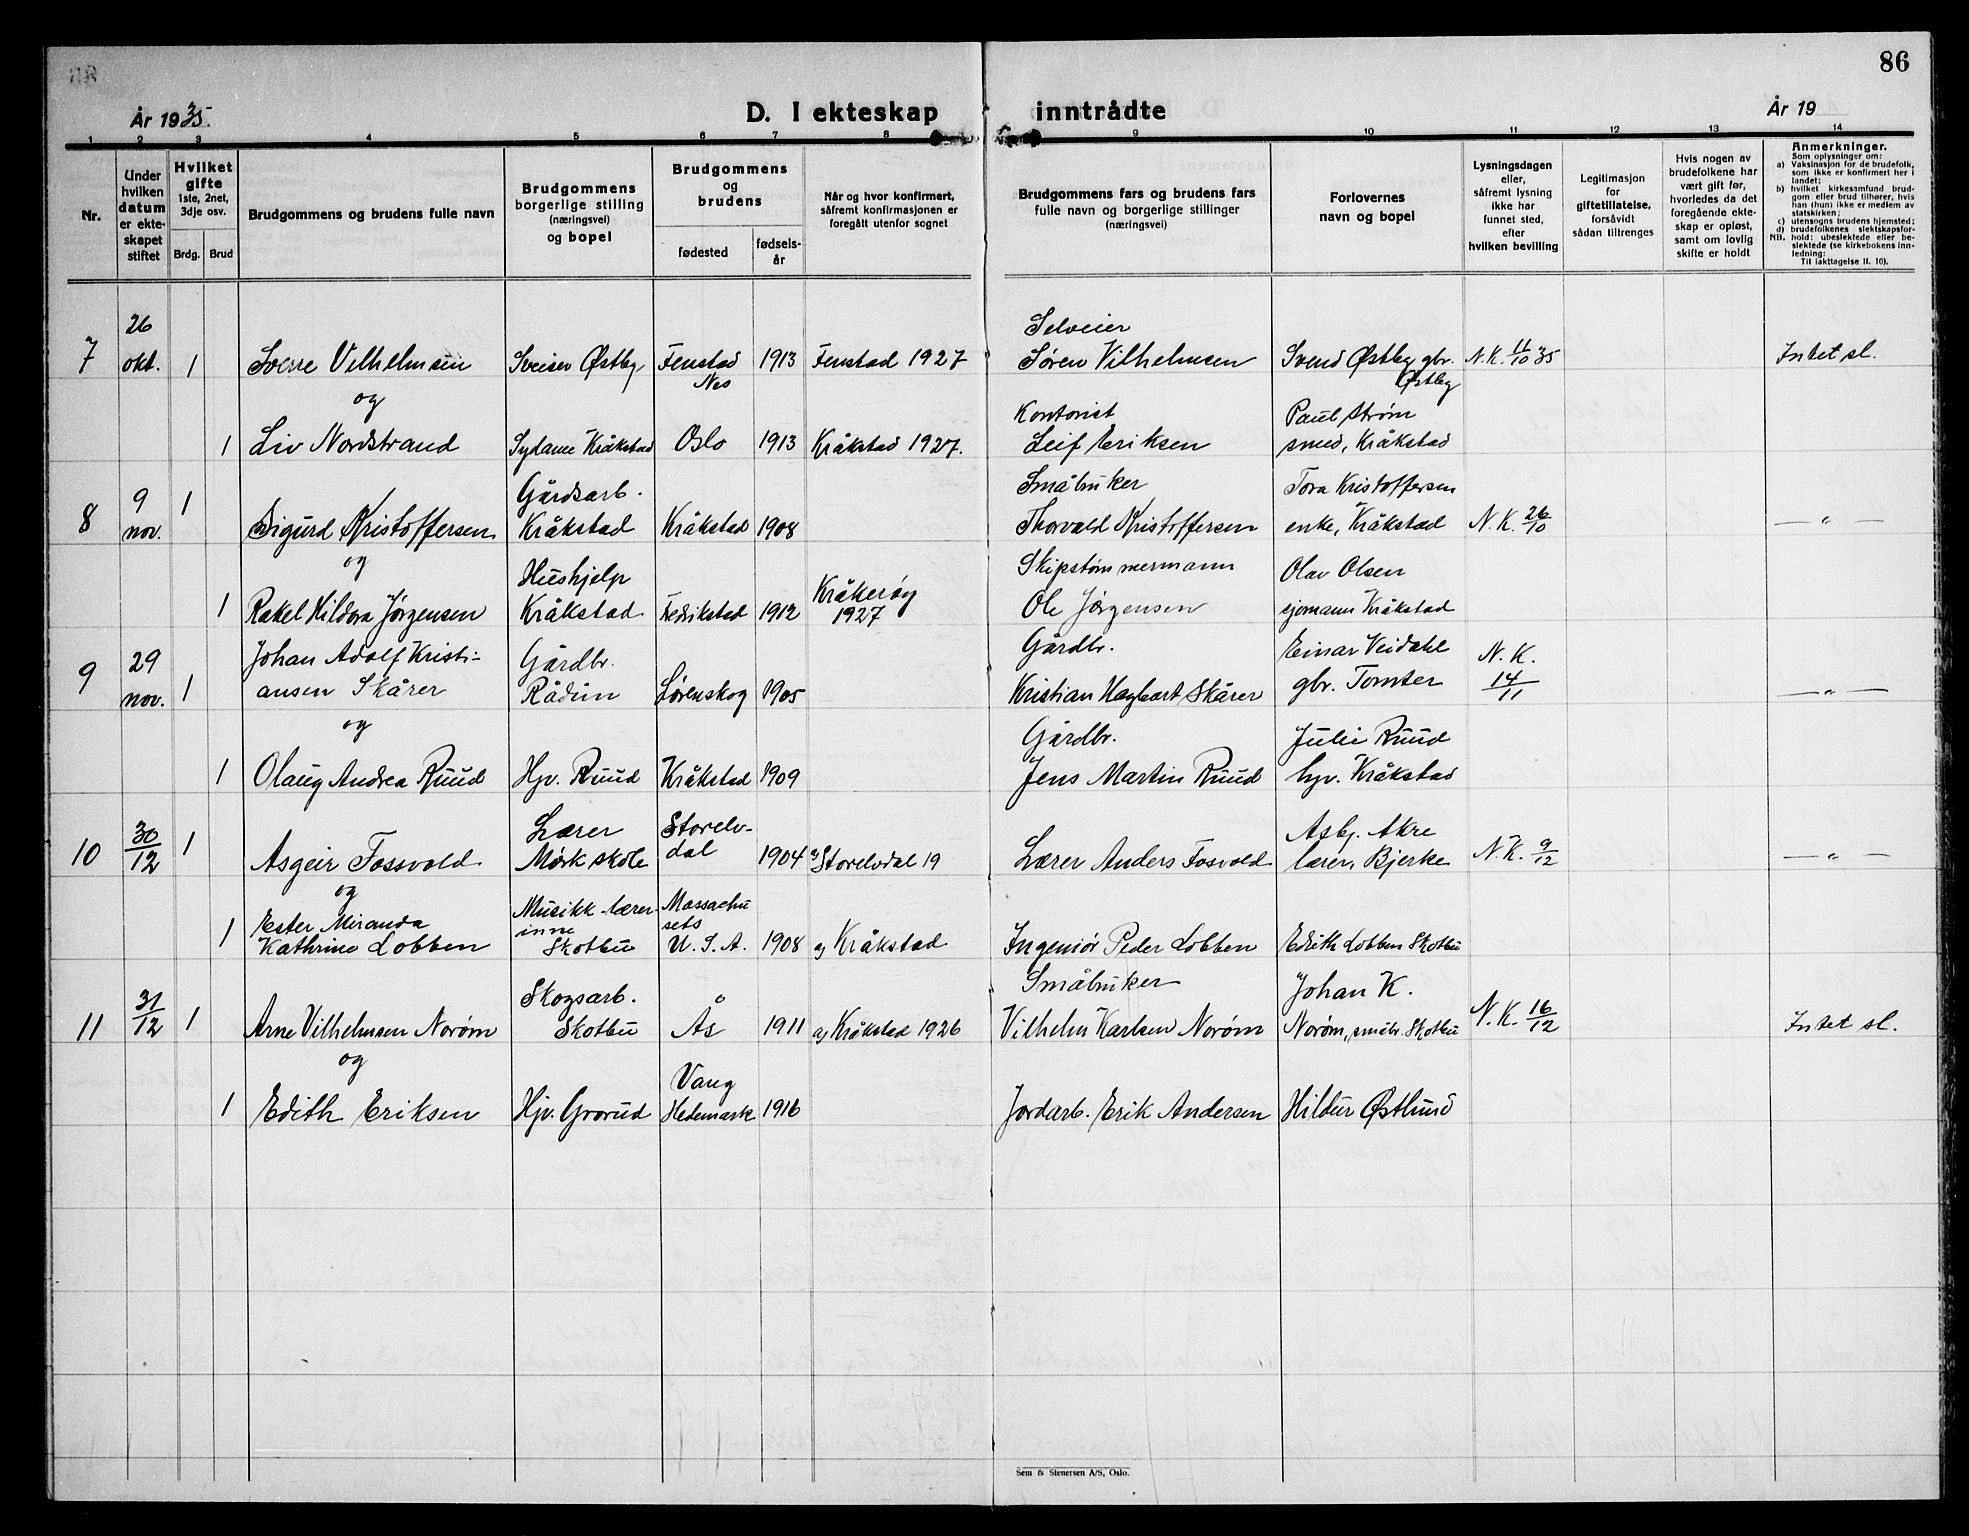 86
År 1935.
D. I ekteskap inntrådte
År 19
1 2 3 4 5 6 7 8 9 10 11 12 13 14
Nr.
Under
hvilken
datum
er ekte-
skapet
stiftet
Hvilket
gifte
1ste, 2net,
3dje osv.
Brdg. Brud
Brudgommens og brudens fulle navn
Brudgommens
borgerlige stilling
(næringsvei)
og bopel
Brudgommens
og
brudens
fødested
fødsels-
år
Når og hvor konfirmert,
såfremt konfirmasjonen er
foregått utenfor sognet
Brudgommens fars og brudens fars
fulle navn og borgerlige stillinger
(næringsvei)
Forlovernes
navn og bopel
Lysningsdagen
eller,
såfremt lysning
ikke har
funnet sted,
efter
hvilken bevilling
Legitimasjon
for
giftetillatelse,
forsåvidt
sådan tiltrenges
Hvis nogen av
brudefolkene har
vært gift før,
hvorledes da det
foregående ekte-
skap er opløst,
samt om lovlig
skifte er holdt
Anmerkninger.
Som oplysninger om:
a) Vaksinasjon for de brudefolk,
som ikke er konfirmert her i
landet;
b) hvilket kirkesamfund brud-
gom eller brud tilhører, hvis
han (hun) ikke er medlem av
statskirken;
c) utensogns brudens hjemsted;
d) brudefolkenes slektskapsfor-
NB. hold: ubeslektede eller be-
slektede (se kirkebokens inn-
ledning:
Til iakttagelse II. 10).
26 Selveier
7 okt. 1 Sverre Vilhelmsen Sveiser Østby Fenstad 1913 Fenstad 1927 Søren Vilhelmsen Svend Østby gbr. N.K. 11/10 35 Intet sl.
Nes Østby
og
Kontorist Paul Strøm
1 Liv Nordstrand Sydame Kråkstad Oslo 1913 Kråkstad 1927. Leif Eriksen smed, Kråkstad
9 1 Gårdsarb. Småbruker Tora Kristoffersen
8 nov. Sigurd Kristoffersen Kråkstad Kråkstad 1908 Thorvald Kristoffersen enke, Kråkstad N.K. 26/10 — " —
og Hushjelp Skipstømmermann Olav Olsen
1 Rakel Hildora Jørgensen Kråkstad Fedrikstad 1912 Kråkerøy 1927 Ole Jørgensen sjømann Kråkstad
29 Johan Adolf Kristi- Gårdbr. Gårdbr. Einar Veidahl N.K.
9 nov. 1 ansen Skårer Rådim Lørenskog 1905 Kristian Hagbart Skårer gbr. Tomter 14/11 — " —
og Gårdbr. Julie Ruud
1 Olaug Andrea Ruud Hjv. Ruud Kråkstad 1909 Jens Martin Ruud hjv. Kråkstad
30/12 1 Lærer Storelv- Asbj. Akre
10 Asgeir Fossvold Mørk skole dal 1904 Storelvdal 19 Lærer Anders Fosvold lærer, Bjerke N.K. 9/12 — " —
og
Ester Miranda Musikk-lærer- Massachu
inne sets
1 Kathrine Lobben Skotbu U.S.A. 1908 Kråkstad Ingeniør Peder Lobben Edith Lobben Skotbu
31/12 Skogsarb. Småbruker Johan K.
11 1 Arne Vilhelmsen Norøm Skotbu Ås 1911 Kråkstad 1926 Vilhelm Karlsen Norøm Norøm, småbr. Skotbu N.K. 16/12 Intet sl.
og
Vang
1 Edith Eriksen Hjv. Grorud Hedemark 1916 Jordarb. Erik Andersen Hildur Østlund
Sem & Stenersen A/S, Oslo.